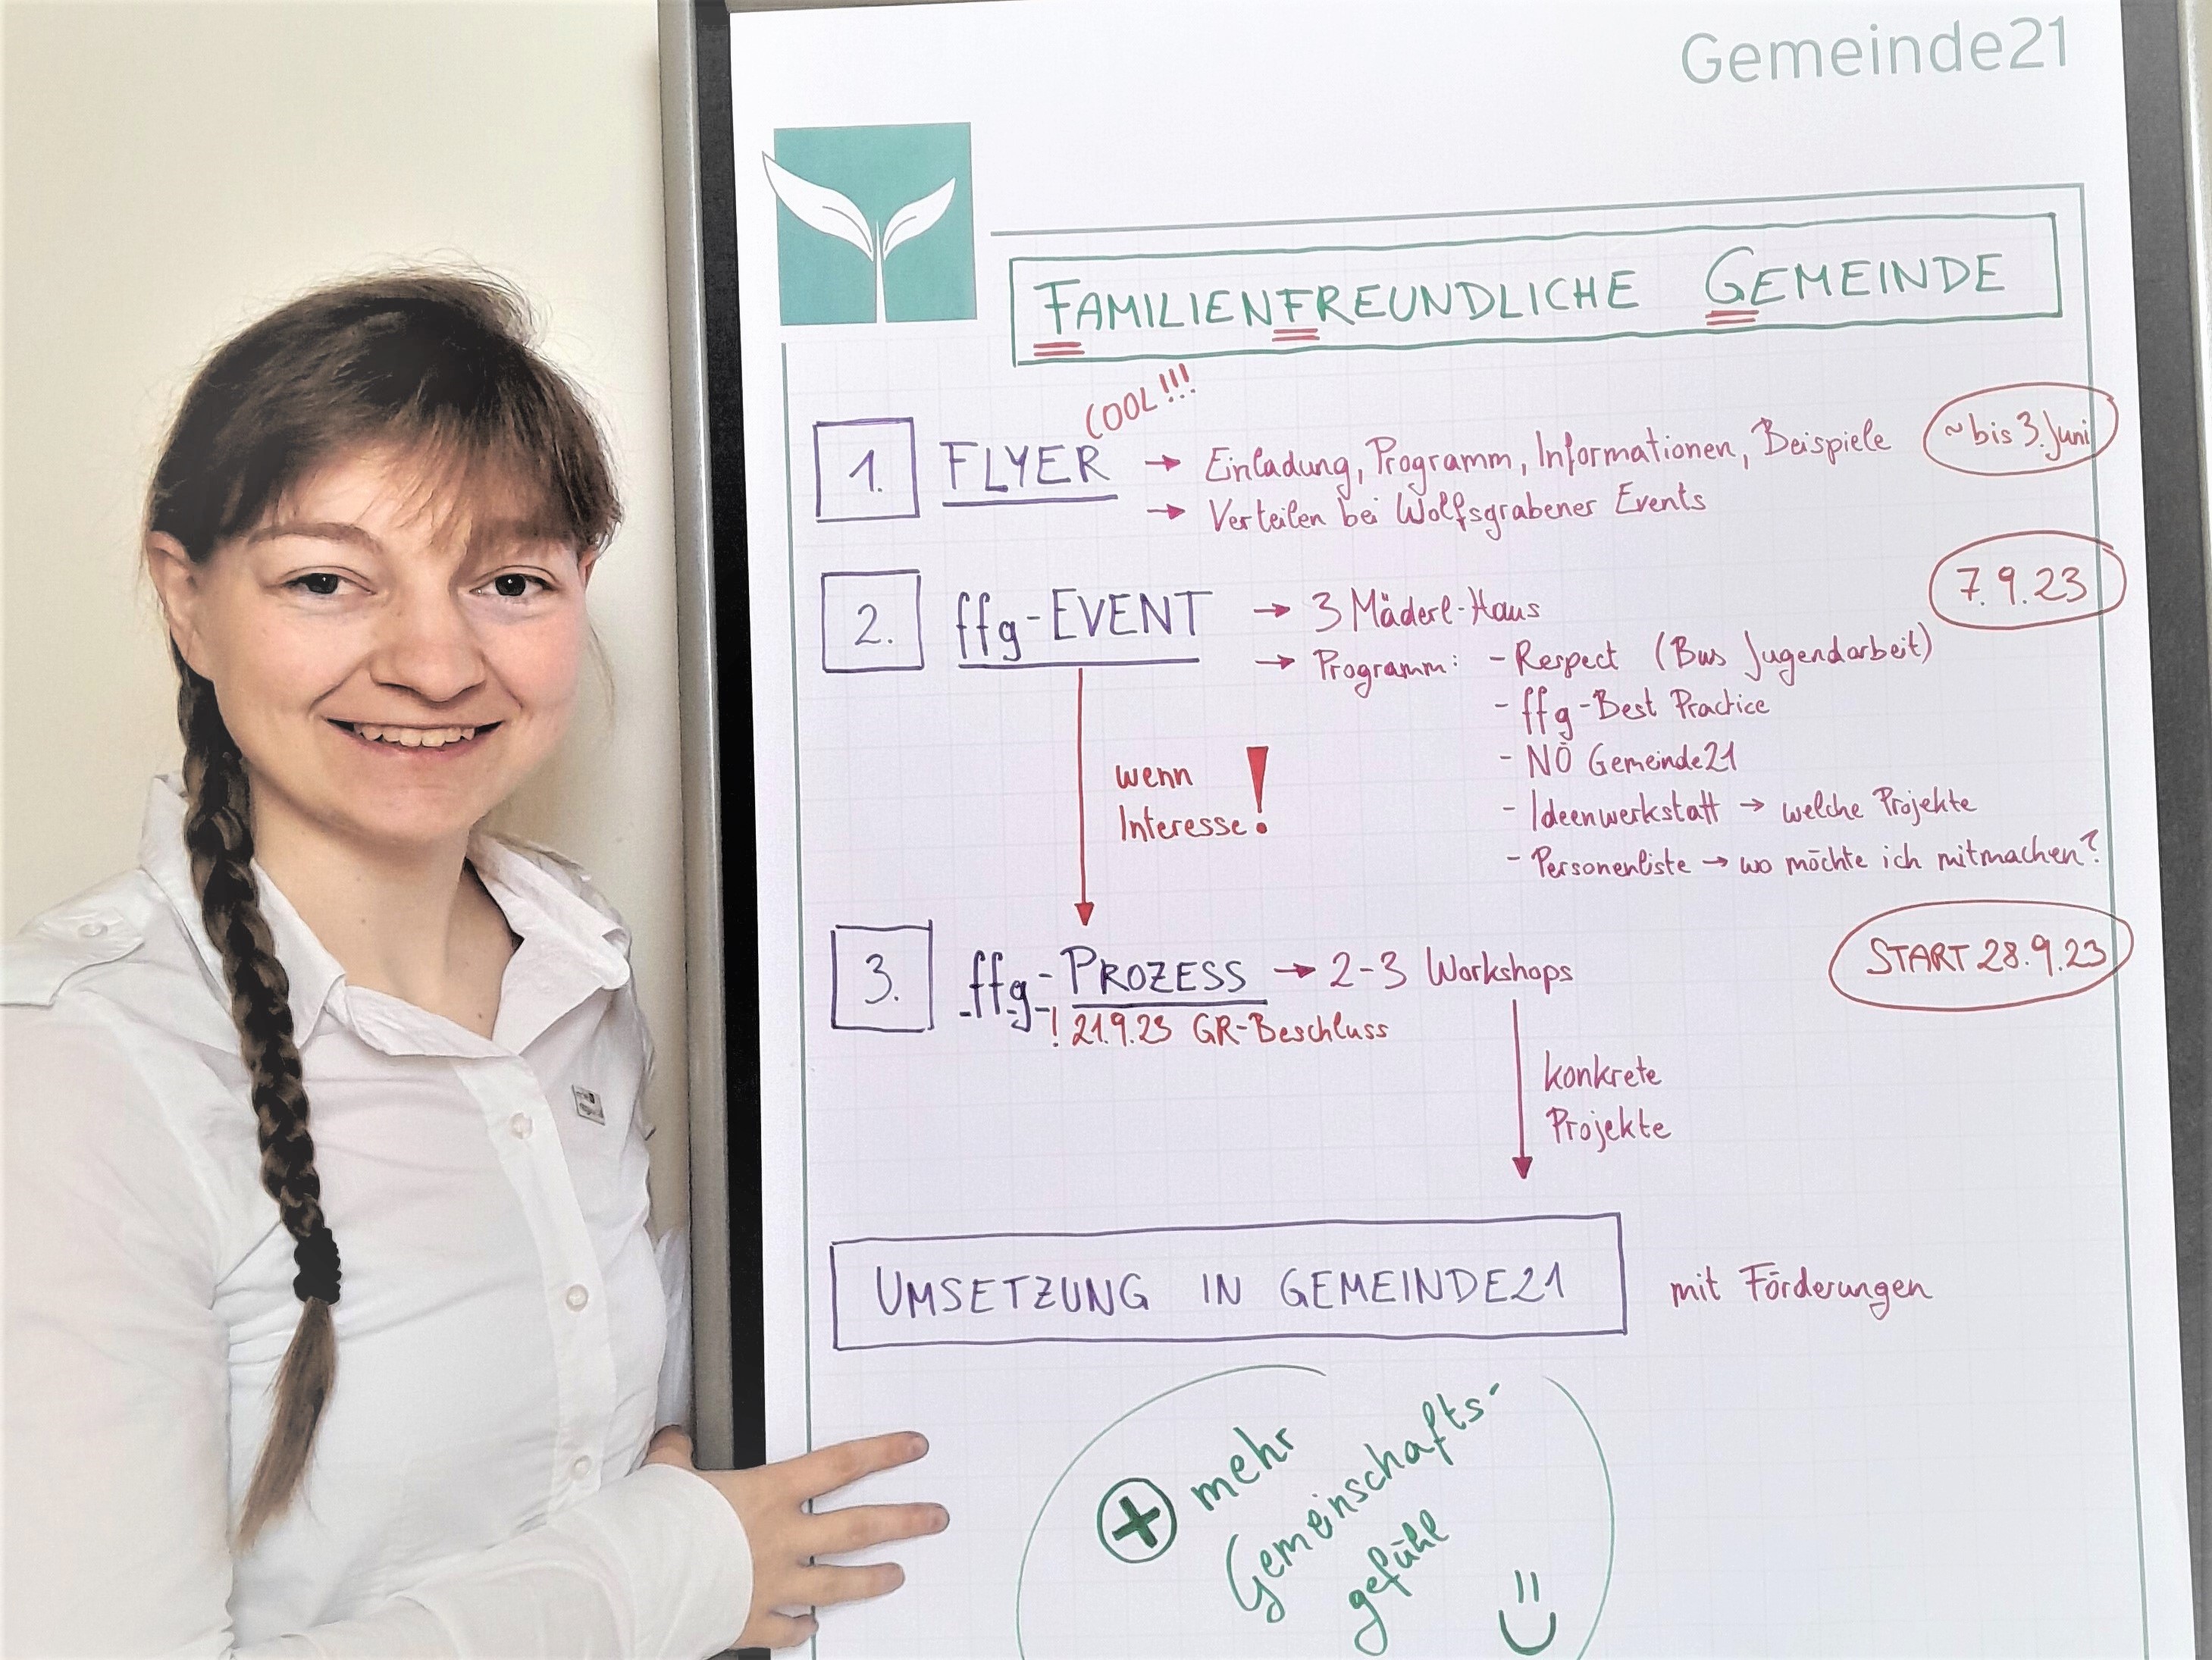 Gemeinde21
FAMILIENFREUNDLICHE GEMEINDE
COOL!!!
1. FLYER → Einladung, Programm, Informationen, Beispiele ~bis 3. Juni
→ Verteilen bei Wolfsgrabener Events
7.9.23
2. ffg-EVENT → 3 Mäderl-Haus
→ Programm: - Respect (Bus Jugendarbeit)
- ffg-Best Practice
- NÖ Gemeinde21
- Ideenwerkstatt → welche Projekte
- Personenliste → wo möchte ich mitmachen?
wenn
Interesse!
3. ffg-PROZESS → 2-3 Workshops START 28.9.23
! 21.9.23 GR-Beschluss
konkrete
Projekte
UMSETZUNG IN GEMEINDE21 mit Förderungen
+ mehr
Gemeinschafts-
gefühl